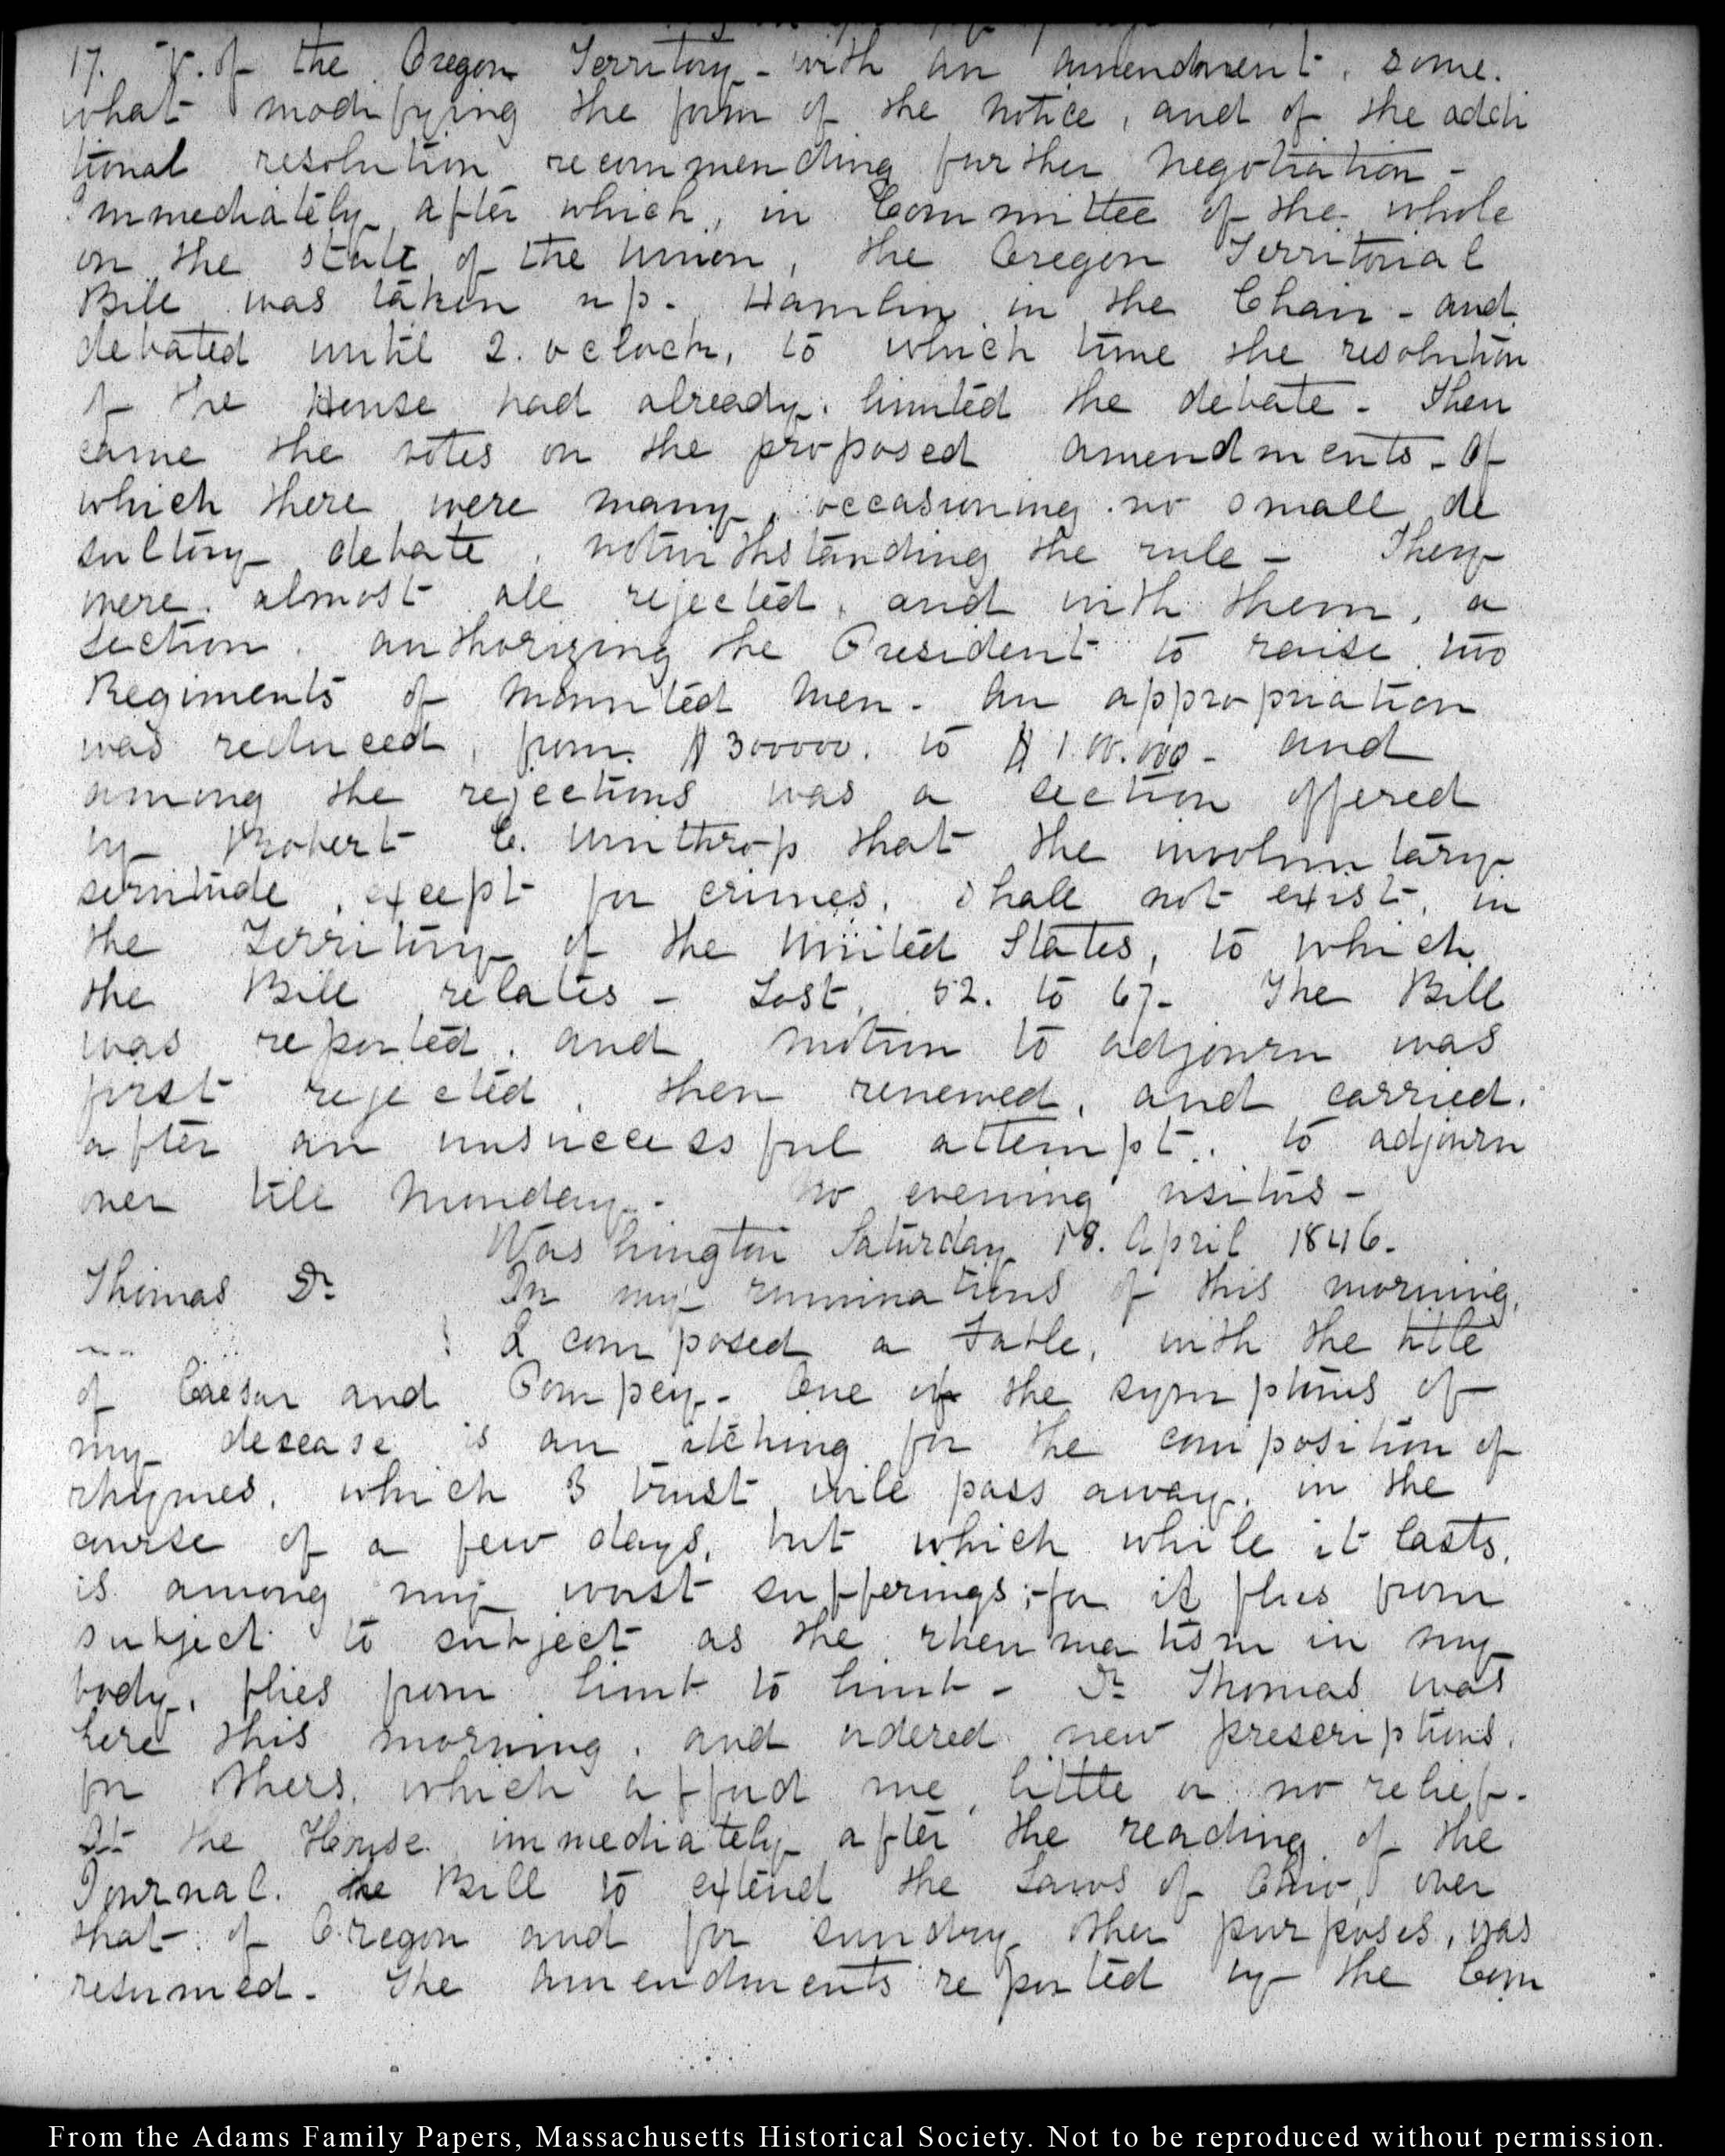 17. V. of the Oregon Territory - with an amendment, some.
what modifying the form of the notice, and of the addi
tional resolution recommending further negotiation -
Immediately after which, in Committee of the whole
on the state of the Union, the Oregon Territorial
Bill was taken up. Hamlin in the Chair - and
debated until 2. oclock, to which time the resolution
of the House had already limited the debate - Then
came the votes on the proposed amendments - Of
which there were many, occasioning no small de
sultory debate, notwithstanding the rule - They
were almost all rejected, and with them, a
section authorizing the President to raise two
Regiments of mounted men. An appropriation
was reduced, from $300000. to $100.000 - and
among the rejections was a section offered
by Robert C. Winthrop that the involuntary
servitude, except for crimes, shall not exist, in
the Territory of the United States, to which
the Bill relates - Lost, 52. to 67 - The Bill
was reported, and motion to adjourn was
first rejected, then renewed, and carried.
after an unsuccessful attempt to adjourn
over till Monday. - No evening visitors -
Washington Saturday 18. April 1846.
Thomas Dr
In my ruminations of this morning,
I composed a Fable, with the title
of Caesar and Pompey - One of the symptoms of
my desease is an itching for the composition of
rhymes, which I trust will pass away, in the
course of a few days, but which while it lasts,
is among my worst sufferings; - for it flies from
subject to subject as the rheumatism in my
body, flies from limb to limb - Dr Thomas was
here this morning, and ordered new prescriptions,
for others, which afford me, little or no relief.
At the House immediately after the reading of the
Journal. the Bill to extend the Laws of Ohio, over
that of Oregon and for sundry other purposes, was
resumed. The amendments reported by the Com
From the Adams Family Papers, Massachusetts Historical Society. Not to be reproduced without permission.